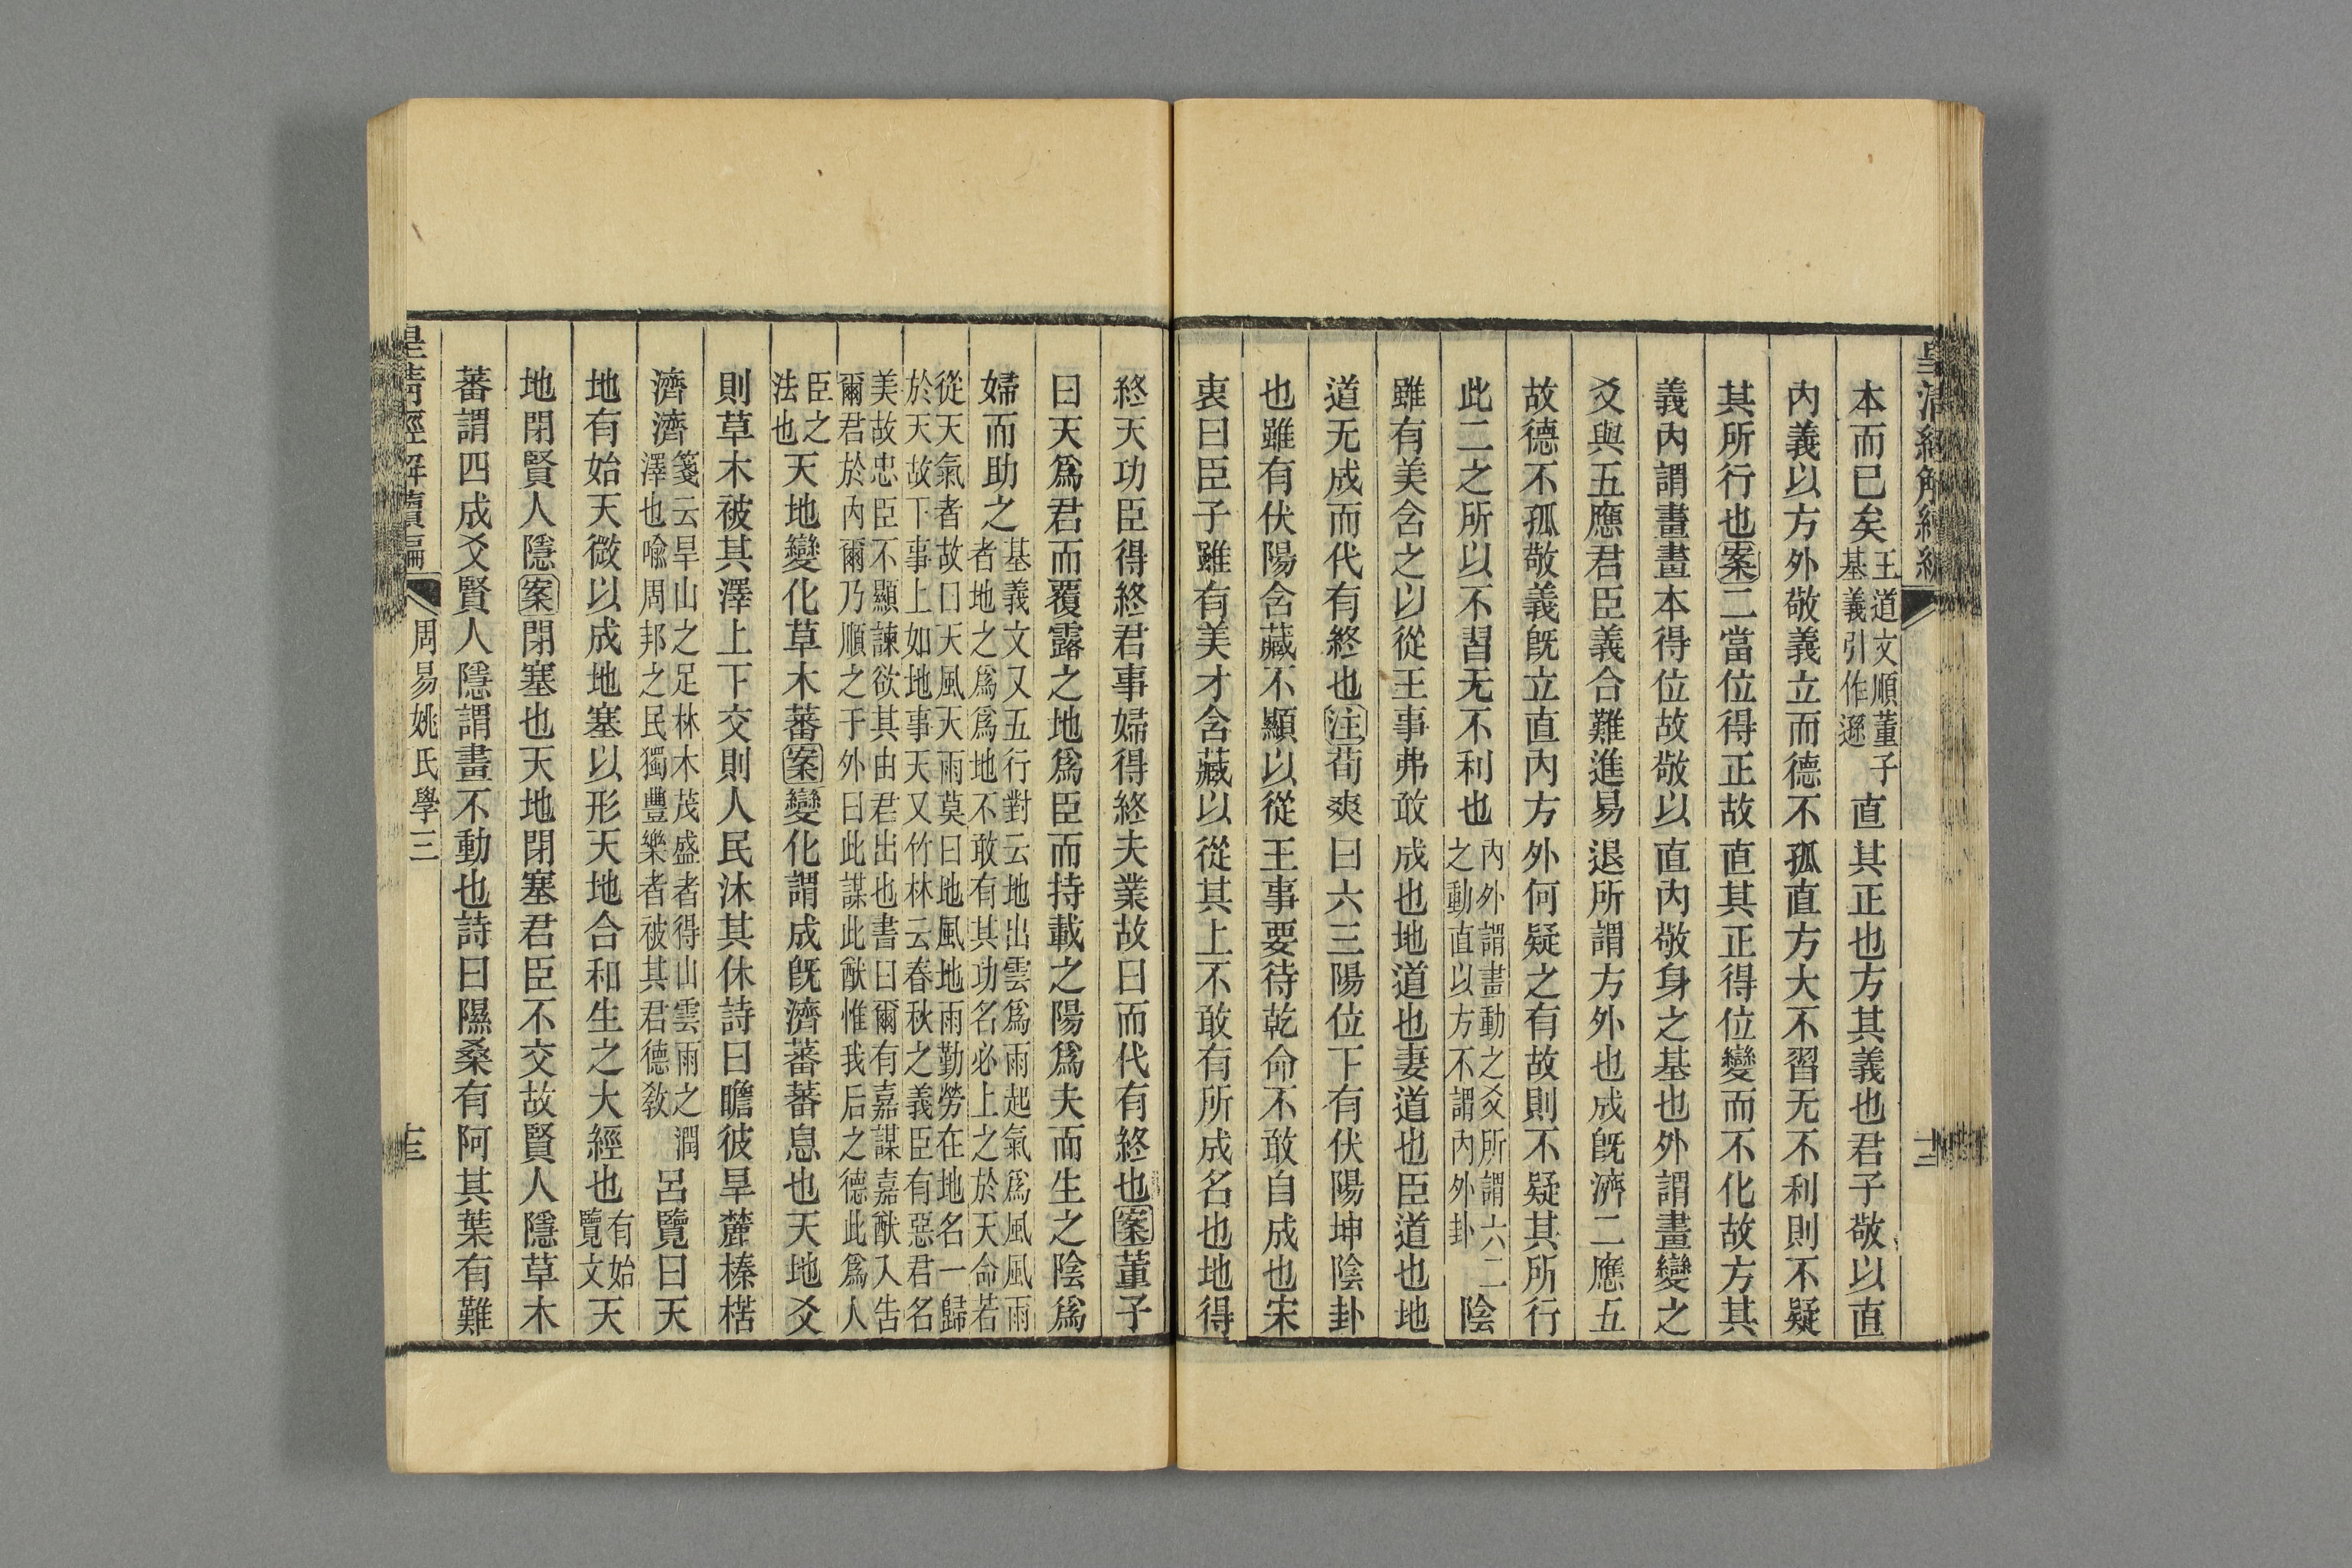 本而已矣王道文順董子基義引作遜直其正也方其義也君子敬以直
內義以方外敬義立而德不孤直方大不習无不利則不疑
其所行也案二當位得正故直其正得位變而不化故方其
義內謂畫畫本得位故敬以直內敬身之基也外謂畫變之
爻與五應君臣義合難進易退所謂方外也成旣濟二應五
故德不孤敬義旣立直內方外何疑之有故則不疑其所行
此二之所以不習无不利也內外謂畫動之爻所謂六二之動直以方不謂內外卦陰
雖有美含之以從王事弗敢成也地道也妻道也臣道也地
道无成而代有終也注荀爽曰六三陽位下有伏陽坤陰卦
也雖有伏陽含藏不顯以從王事要待乾命不敢自成也宋
衷曰臣子雖有美才含藏以從其上不敢有所成名也地得
終天功臣得終君事婦得終夫業故曰而代有終也案董子
曰天爲君而覆露之地爲臣而持載之陽爲夫而生之陰爲
婦而助之基義文又五行對云地出雲爲雨起氣爲風風雨者地之爲爲地不敢有其功名必上之於天命若
從天氣者故曰天風天雨莫曰地風地雨勤勞在地名一歸於天故下事上如地事天又竹林云春秋之義臣有惡君名
美故忠臣不顯諫欲其由君出也書曰爾有嘉謀嘉猷入告爾君於內爾乃順之于外曰此謀此猷惟我后之德此爲人
臣之法也天地變化草木蕃案變化謂成旣濟蕃蕃息也天地爻
則草木被其澤上下交則人民沐其休詩曰瞻彼旱麓榛楛
濟濟箋云旱山之足林木茂盛者得山雲雨之潤澤也喩周邦之民獨豐樂者被其君德敎呂覽曰天
地有始天微以成地塞以形天地合和生之大經也有始覽文天
地閉賢人隱案閉塞也天地閉塞君臣不交故賢人隱草木
蕃謂四成爻賢人隱謂畫不動也詩曰隰桑有阿其葉有難
周易姚氏學三